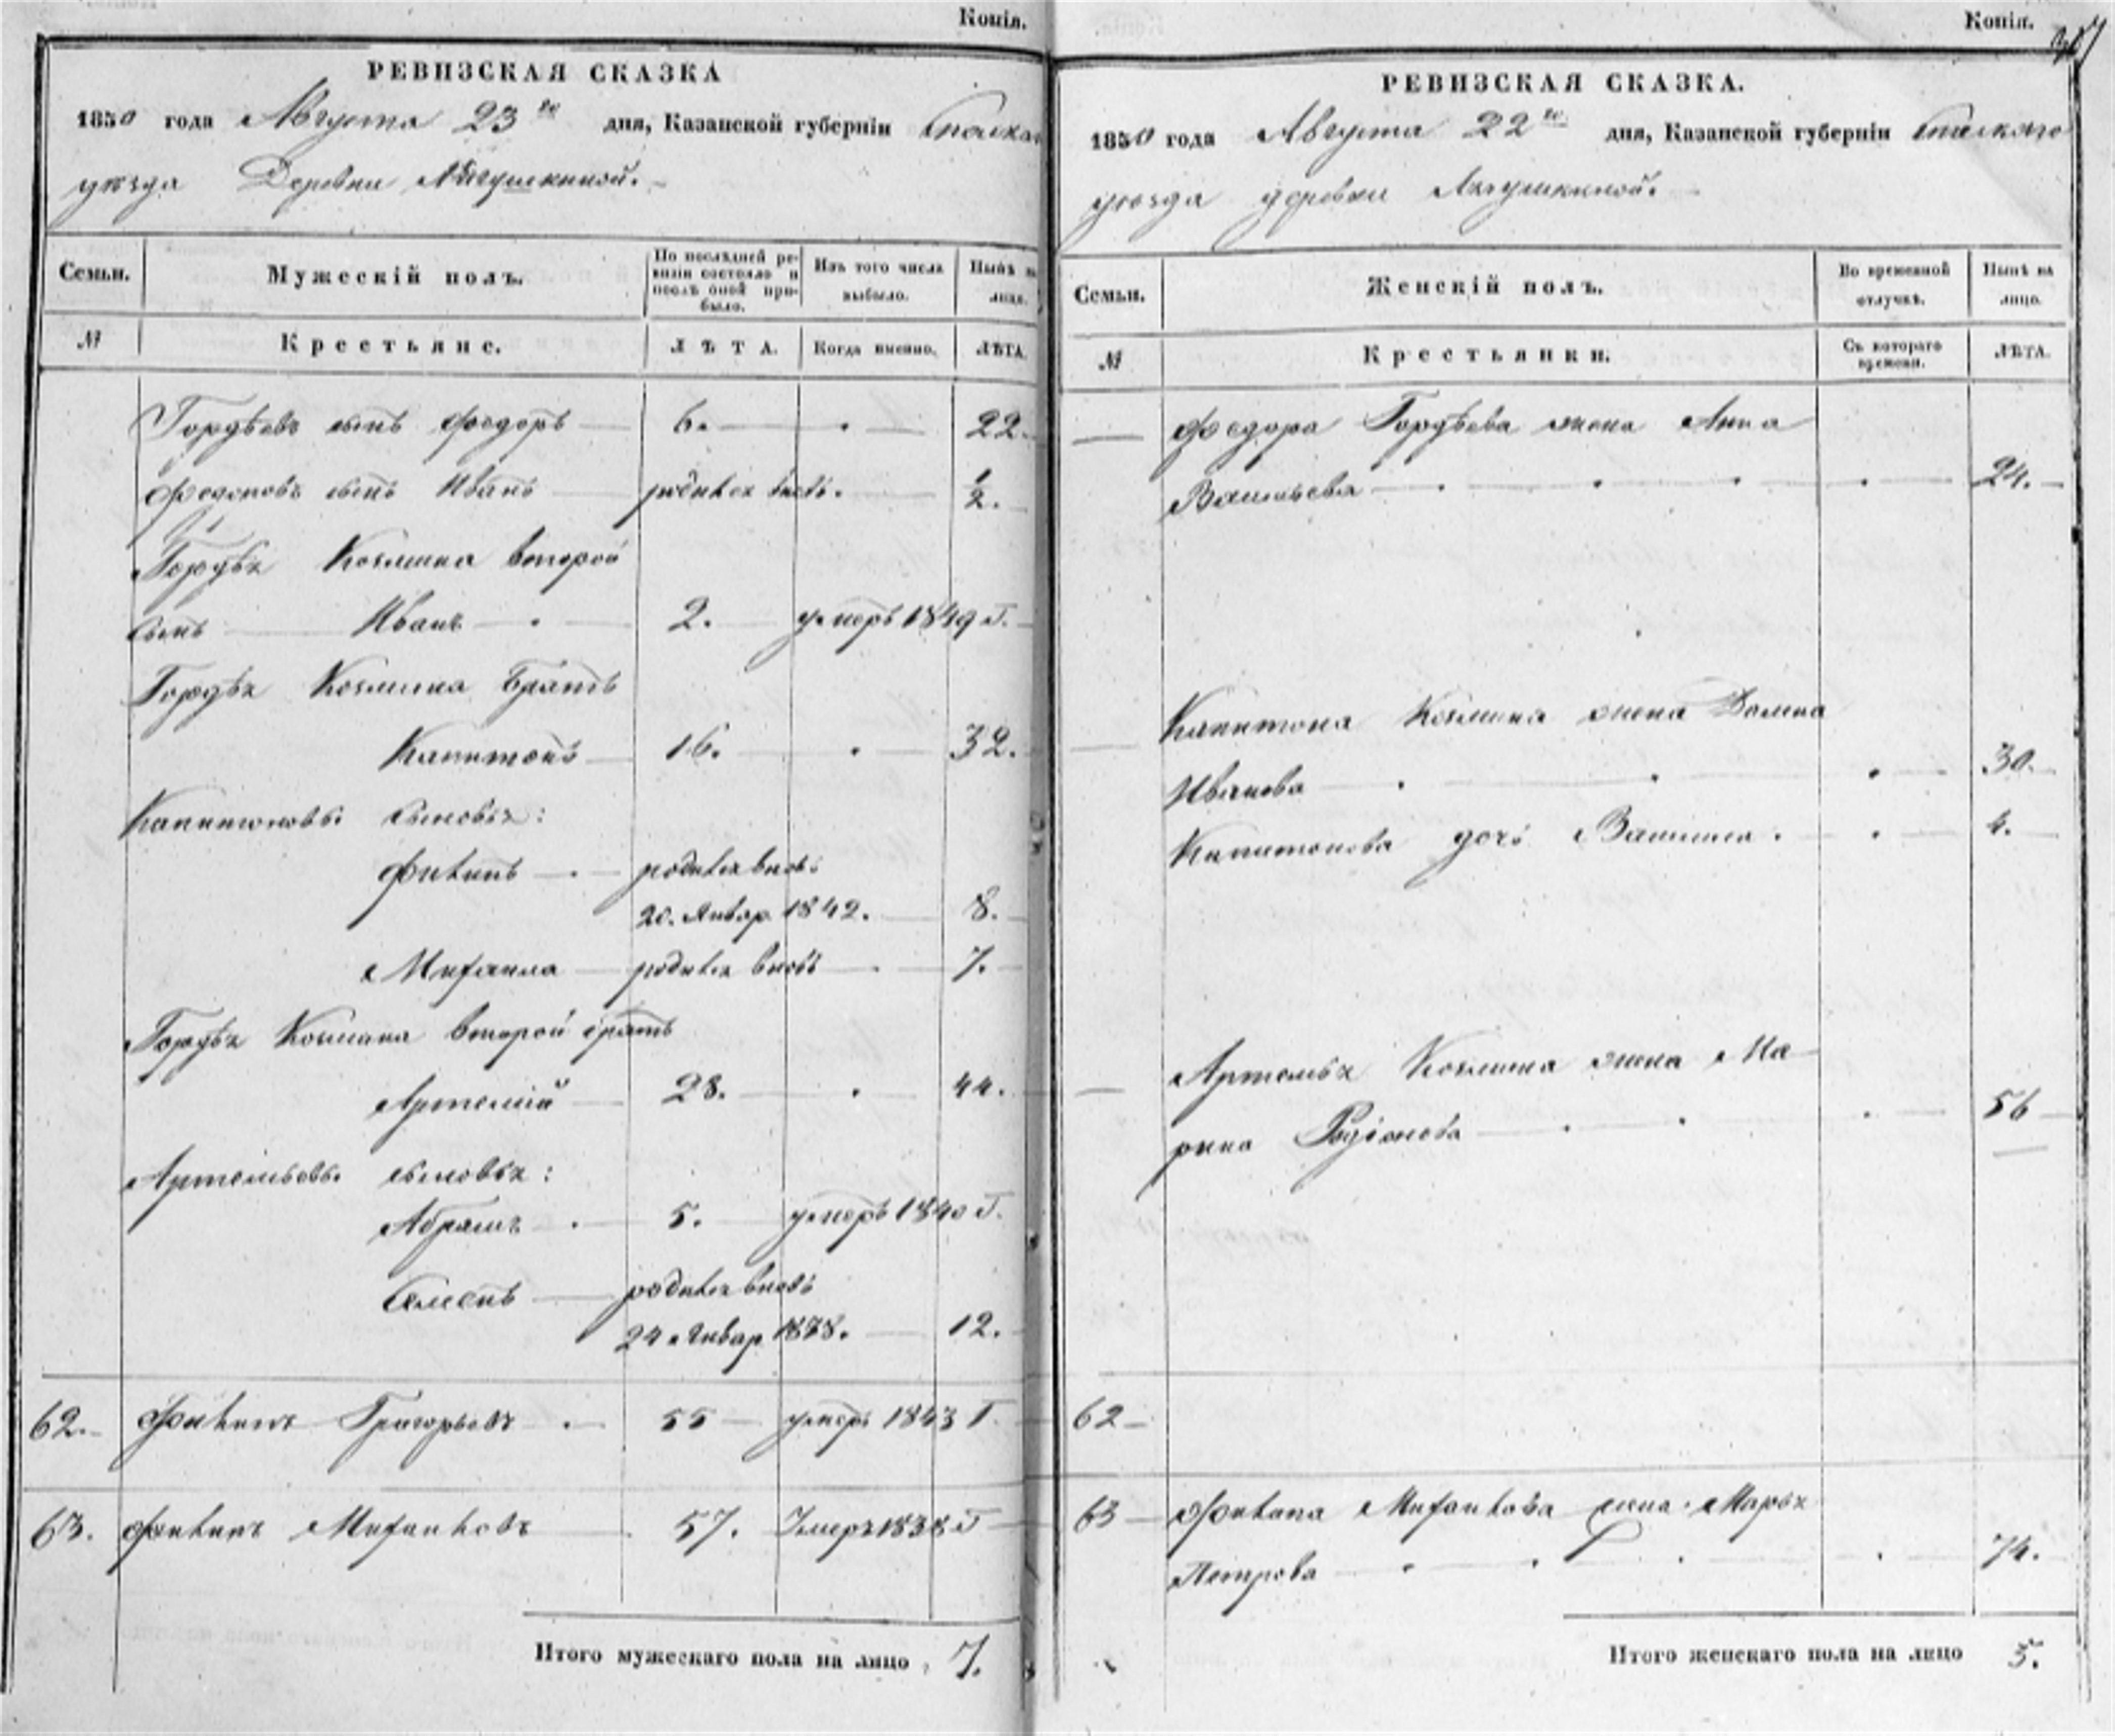 Копія.
РЕВИЗСКАЯ СКАЗКА
1850 года Августа 23го дня, Казанской губерніи Спаскаго
уѣзда Деревни
Семьи.
Мужескій полъ.
По послѣдней ре-
визіи состояло и
послѣ оной при-
было.
Изъ того числа
выбыло.
Нынѣ на
лицо.
№
Крестьяне.
ЛѢТА.
Когда именно.
ЛѢТА.
Гордѣевъ сынъ Федоръ 6. 22.
сынъ Иванъ родился вновь. 1/2.
Гордѣя Козмина второй
сынъ Иванъ 2. умеръ 1849 г.
Гордѣя Козмина братъ
Капитонъ 16. 32.
Капитоновы сыновья:
Филипъ родился вновь
20. Январ. 1842. 8.
Михаила родился вновь 7.
Гордѣя Козмина второй братъ
Артемій 28. 44.
Артемьевы сыновья:
Абрамъ 5. умеръ 1840 г.
Семенъ родился вновь
24 Январ. 1838. 12.
62. Филипъ Григорьевъ 55 умеръ 1843 г.
63. Филипъ Михайловъ 57. Умеръ 1838 г
Итого мужескаго пола на лицо 7.
Копія.
РЕВИЗСКАЯ СКАЗКА.
1850 года Августа 22го дня, Казанской губерніи Спаскаго
уѣзда деревни
Семьи.
Женскій полъ.
Во временной
отлучкѣ.
Нынѣ на
лицо.
№
Крестьянки.
Съ котораго
времени.
ЛѢТА.
Федора Гордѣева жена Анна
Васильева 24.
Капитона Козмина жена Домна
Иванова 30.
Капитонова дочь 4.
Артемья Козмина жена Ма-
рина Родіонова 56
62
63 Филипа Михайлова жена Марья
Петрова 74.
Итого женскаго пола на лицо 5.